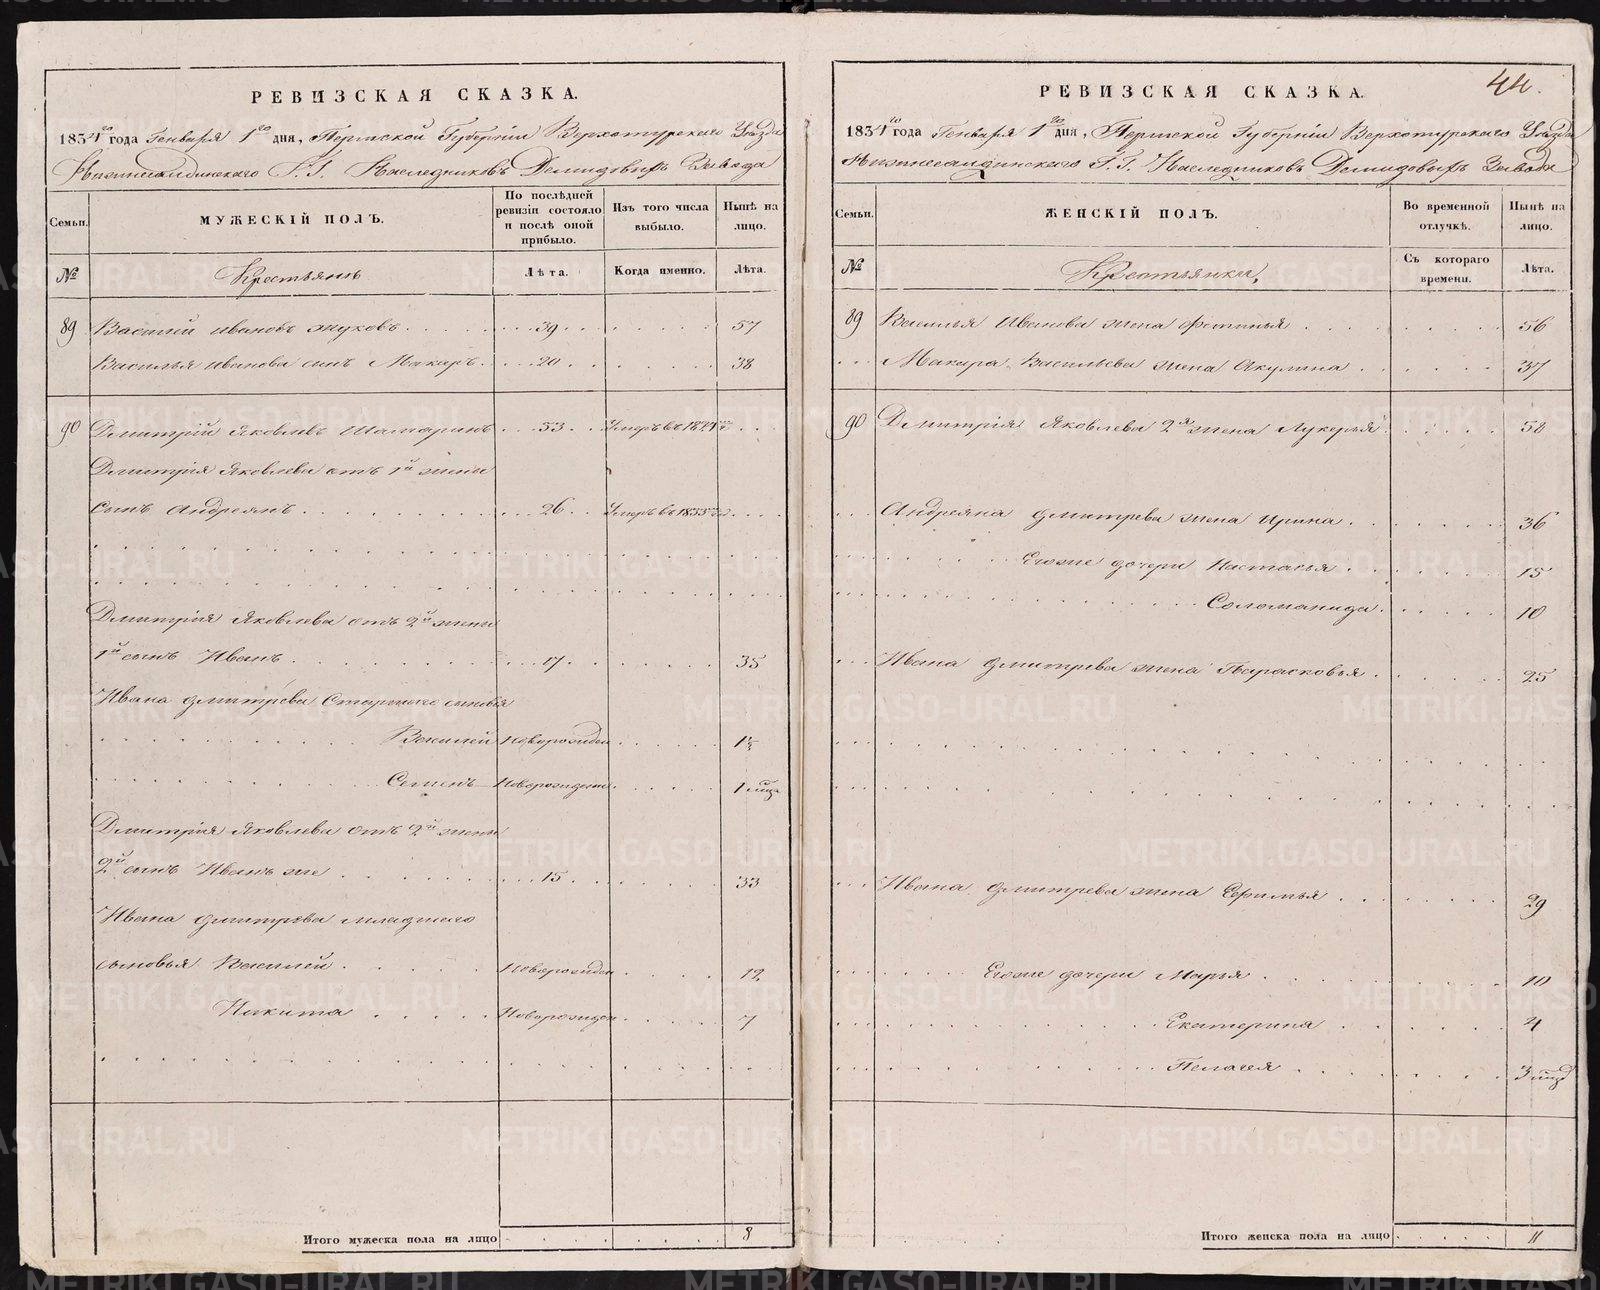 РЕВИЗСКАЯ СКАЗКА.
1834го года Генваря 1го дня, Пермской Губерніи Верхотурскаго Уѣзда
Г.Г. Наследниковъ Демидовыхъ Завода
Семьи. МУЖЕСКІЙ ПОЛЪ. По послѣдней ревизіи состояло и послѣ оной прибыло. Изъ того числа выбыло. Нынѣ на лицо.
№ Крестьянъ Лѣта. Когда именно. Лѣта.
89 Василій Ивановъ Жуковъ 39 57
Василья Иванова сынъ Макаръ 20 38
90 Дмитрій Яковлевъ Шамаринъ 53 Умеръ въ 1821
Дмитрія Яковлева отъ 1й жены
сынъ Андреянъ 26 Умеръ въ 1833
Дмитрія Яковлева отъ 2й жены
1й сынъ Иванъ 17 35
Ивана Дмитрева Старшаго сыновья
Василей Новорожден 1½
Семенъ Новорожден 1 мца
Дмитрія Яковлева отъ 2й жены
2й сынъ Иванъ же 15 33
Ивана Дмитрева младшаго
сыновья Василей Новорожден 12
Никита Новорожден 7
Итого мужеска пола на лицо 8
44.
РЕВИЗСКАЯ СКАЗКА.
1834го года Генваря 1го дня, Пермской Губерніи Верхотурскаго Уѣзда
Г.Г. Наследниковъ Демидовыхъ Завода
Семьи. ЖЕНСКІЙ ПОЛЪ. Во временной отлучкѣ. Нынѣ на лицо.
№ Крестьянки, Съ котораго времени. Лѣта.
89 Василья Иванова жена Фетинья 56
Макара Васильева жена Акулина 37
90 Дмитрія Яковлева 2я жена Лукерья 58
Андреяна Дмитрева жена Ирина 36
Егоже дочери Настасья 15
Соломанида 10
Ивана Дмитрева жена Парасковья 25
Ивана Дмитрева жена Ефимья 29
Егоже дочери Марья 10
Екатерина 4
Пелагея 3 мцд
Итого женска пола на лицо 11
METRIKI.GASO-URAL.RU